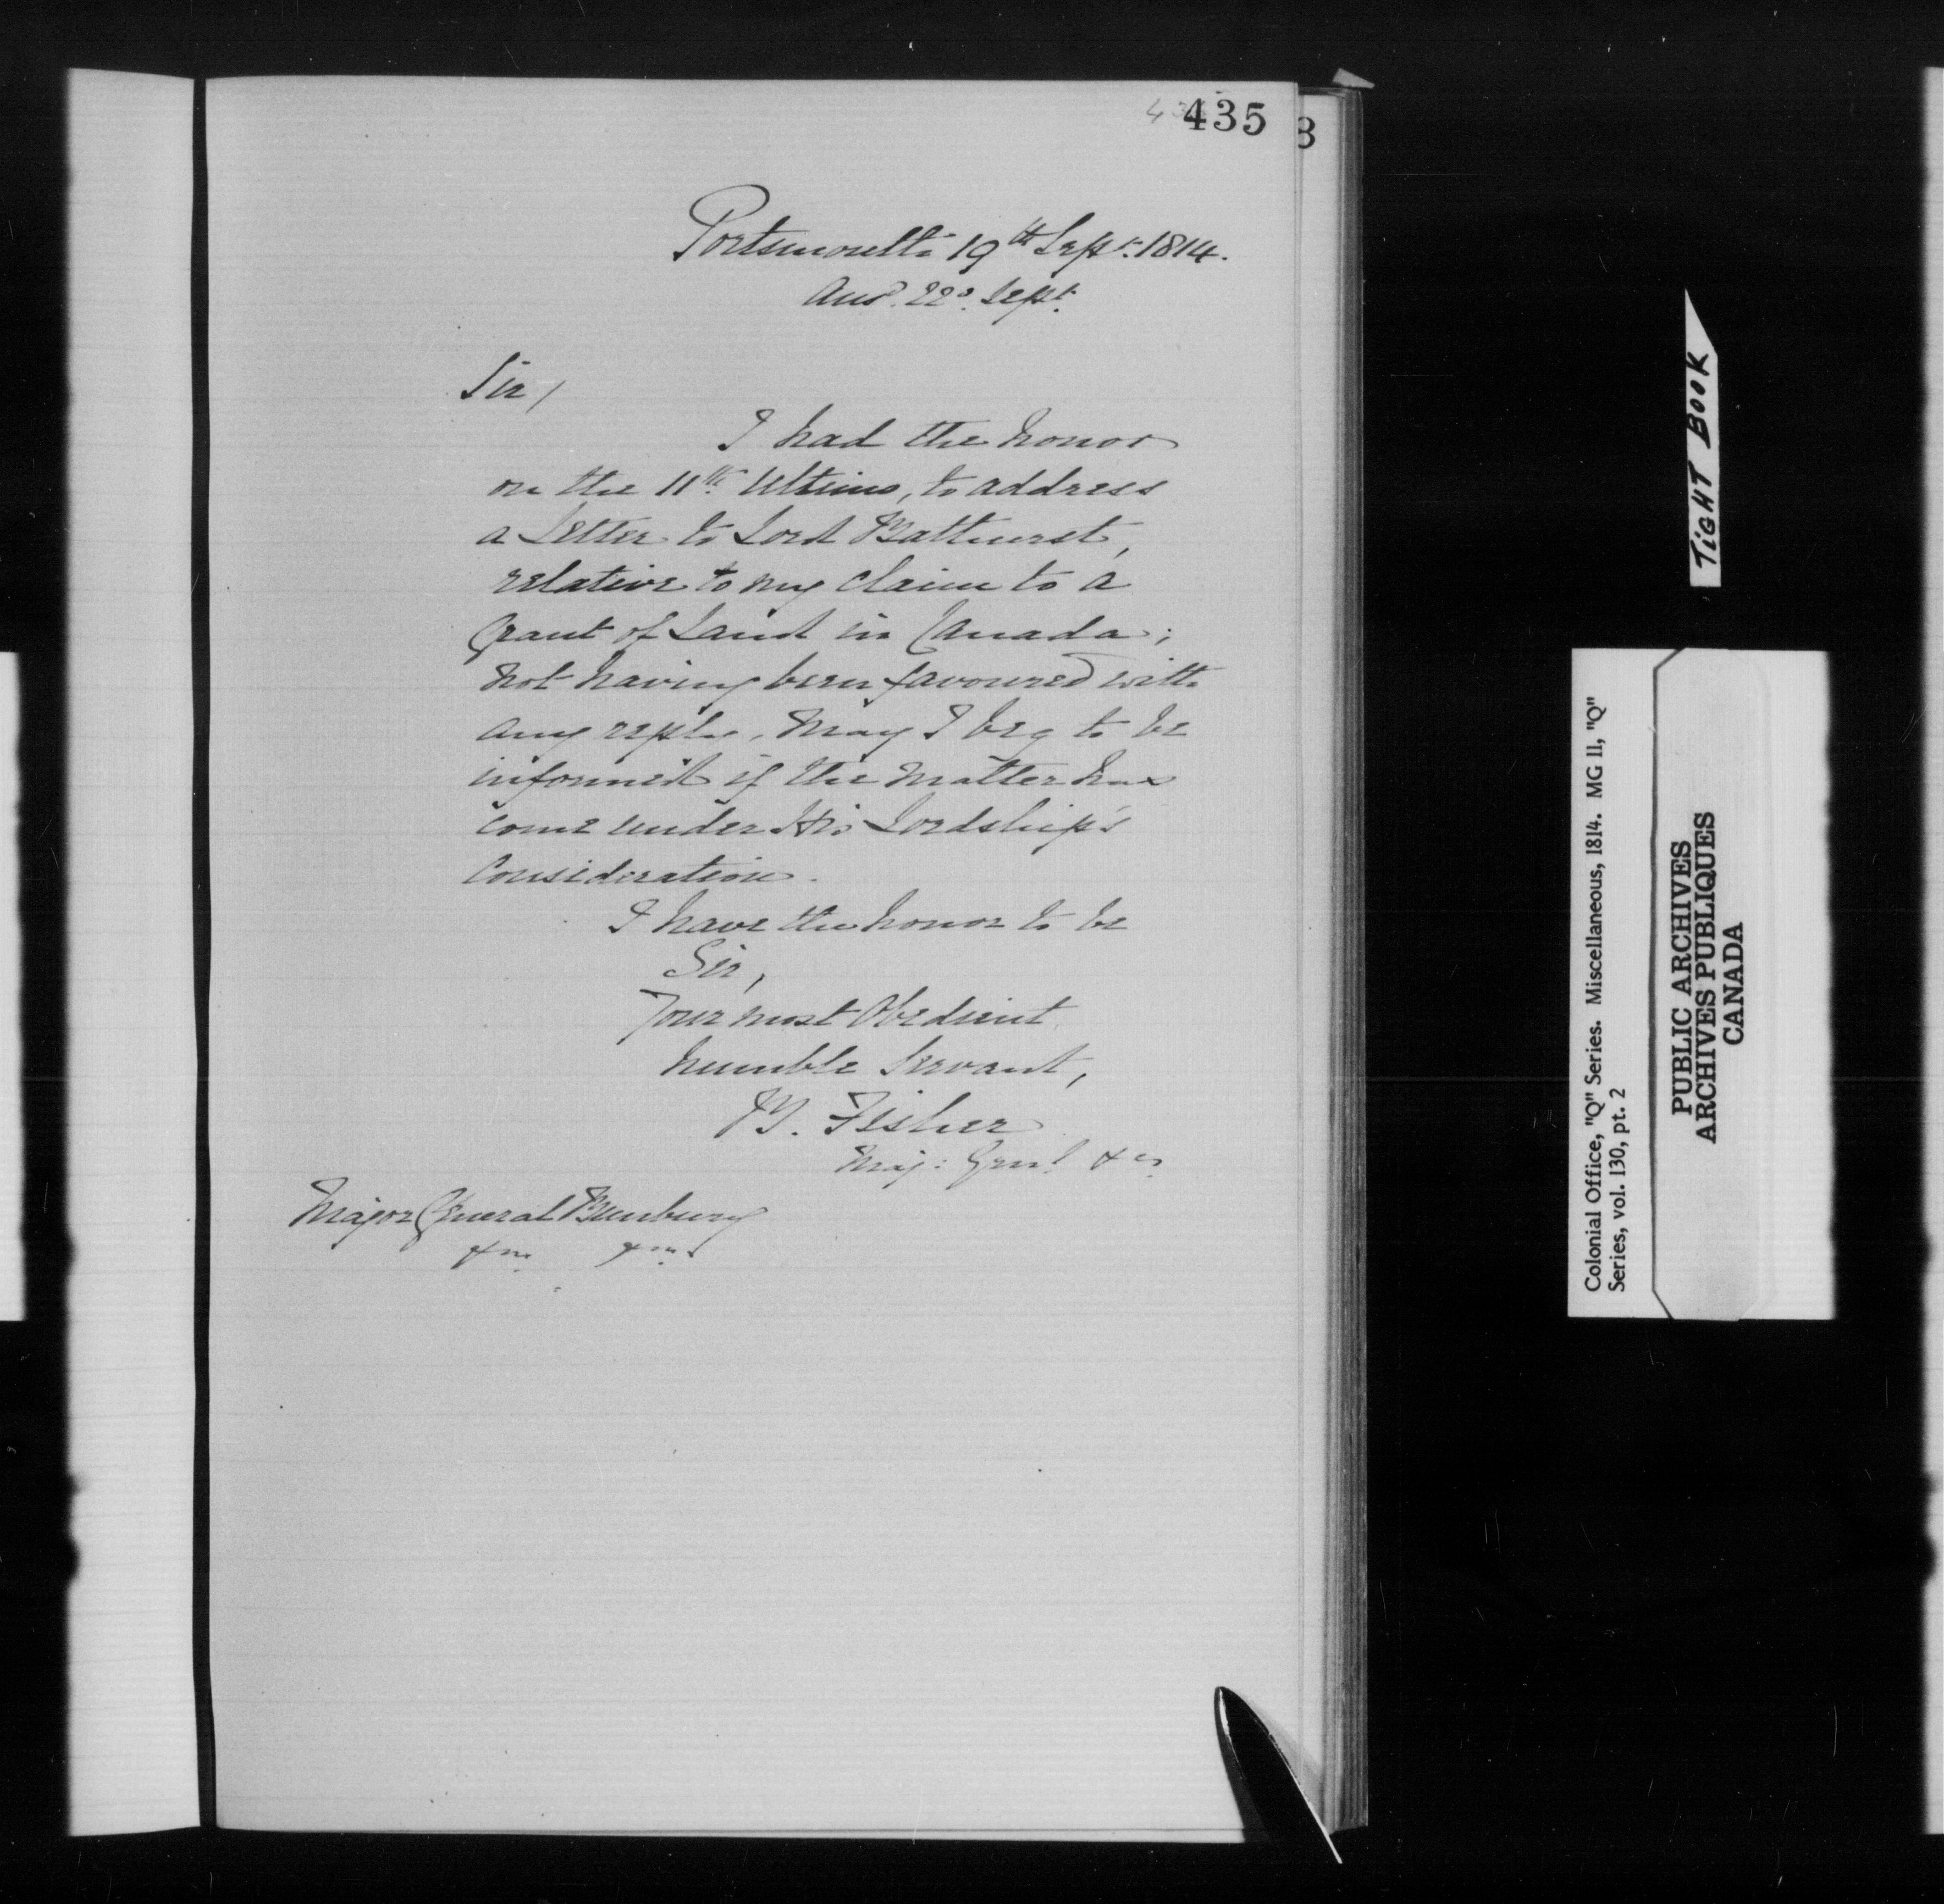 435
8
Portsmouth 19th Sept. 1814.
Ansd. 22d. Sept.
Sir,
I had the honor
on the 11th. Ultimo, to address
a Letter to Lord Bathurst,
relative to my claim to a
Grant of Land in Canada;
not having been favoured with
any reply, May I beg to be
informed if the matter has
come under His Lordship's
Consideration.
I have the honor to be
Sir,
Your most Obedient
humble Servant,
B. Fisher
Maj: Genl. &c.
Major General Bunbury
&c. &c.
TIGHT BOOK
Colonial Office, "Q" Series. Miscellaneous, 1814. MG 11, "Q"
Series, vol. 130, pt. 2
PUBLIC ARCHIVES
ARCHIVES PUBLIQUES
CANADA